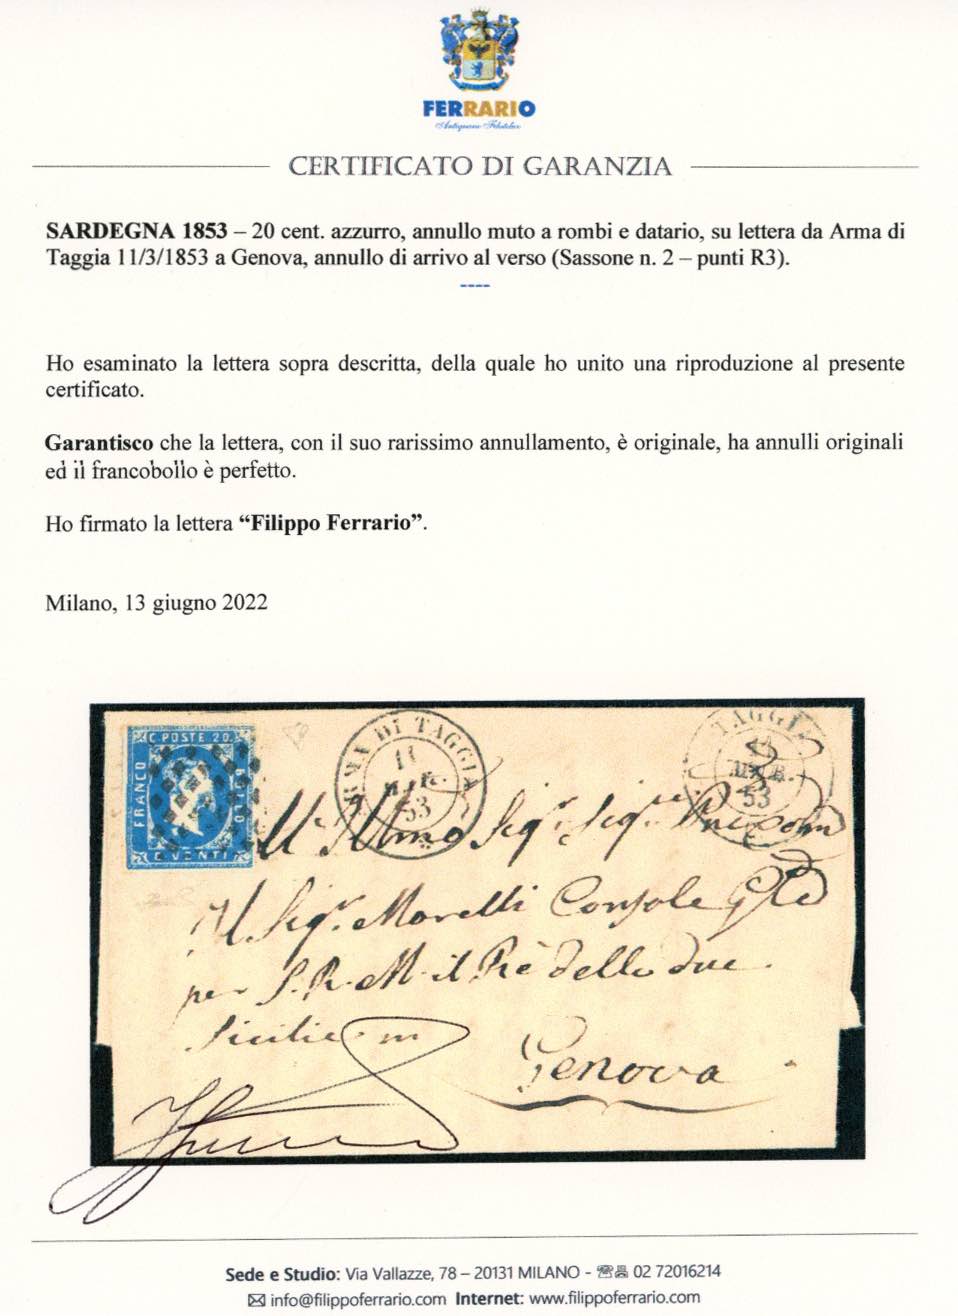 FERRARIO
Antiquario Filatelico
CERTIFICATO DI GARANZIA
SARDEGNA 1853 – 20 cent. azzurro, annullo muto a rombi e datario, su lettera da Arma di
Taggia 11/3/1853 a Genova, annullo di arrivo al verso (Sassone n. 2 – punti R3).
----
Ho esaminato la lettera sopra descritta, della quale ho unito una riproduzione al presente
certificato.
Garantisco che la lettera, con il suo rarissimo annullamento, è originale, ha annulli originali
ed il francobollo è perfetto.
Ho firmato la lettera “Filippo Ferrario”.
Milano, 13 giugno 2022
C. POSTE 20.
FRANCO
BOLLO
C VENTI
RMA DI TAGGIA
11
MAR.
53
TAGGIA
11
MAR.
53
Sigr Sigre
Al Sigr Morelli Console Gle
per S. R. M. il Rè delle due
Sicilie in
Genova
Sede e Studio: Via Vallazze, 78 – 20131 MILANO - ☏ 02 72016214
✉ info@filippoferrario.com Internet: www.filippoferrario.com